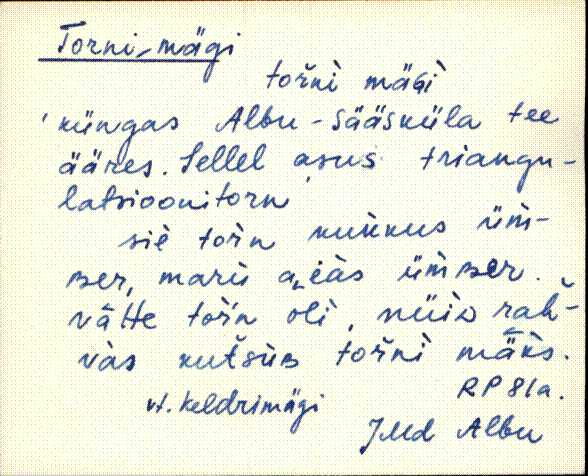 Torni-mägi
torni mäGi
küngas Albu-Sääsküla tee
ääres. Sellel asus triangu-
latsioonitorn
siè torn kukkus üm-
ber, maru ümBer.
torn oli, nüiD rah-
vas kutsuB torni mäks.
RP 81a.
vt. Keldrimägi
JMd Albu